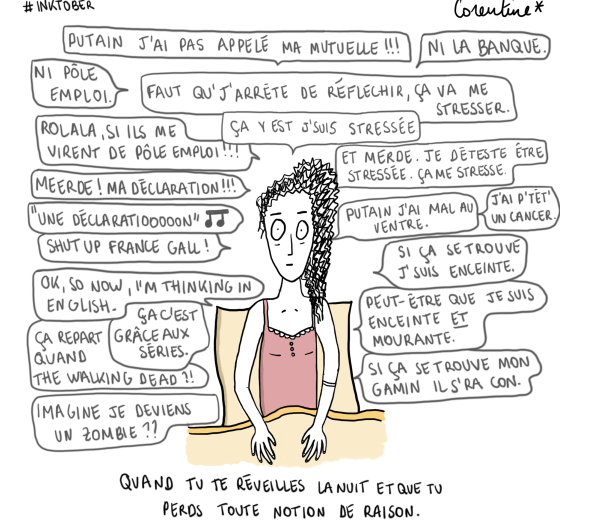 #INKTOBER
Corentine*
PUTAIN J'AI PAS APPELÉ MA MUTUELLE !!!
NI LA BANQUE.
NI PÔLE
EMPLOI.
FAUT QU'J'ARRÊTE DE RÉFLÉCHIR, ÇA VA ME
STRESSER.
ÇA Y EST J'SUIS STRESSÉE
ROLALA, SI ILS ME
VIRENT DE PÔLE EMPLOI !!!
ET MERDE. JE DÉTESTE ÊTRE
STRESSÉE. ÇA ME STRESSE.
MEERDE ! MA DÉCLARATION !!!
PUTAIN J'AI MAL AU
VENTRE.
J'AI P'TÊT'
UN CANCER.
"UNE DÉCLARATIOOOOON" ♫
SHUT UP FRANCE GALL !
SI ÇA SE TROUVE
J'SUIS ENCEINTE.
OK, SO NOW, I'M THINKING IN
ENGLISH.
ÇA C'EST
GRÂCE AUX
SÉRIES.
PEUT-ÊTRE QUE JE SUIS
ENCEINTE ET
MOURANTE.
ÇA REPART
QUAND
THE WALKING DEAD ?!
SI ÇA SE TROUVE MON
GAMIN IL S'RA CON.
IMAGINE JE DEVIENS
UN ZOMBIE ??
QUAND TU TE RÉVEILLES LA NUIT ET QUE TU
PERDS TOUTE NOTION DE RAISON.